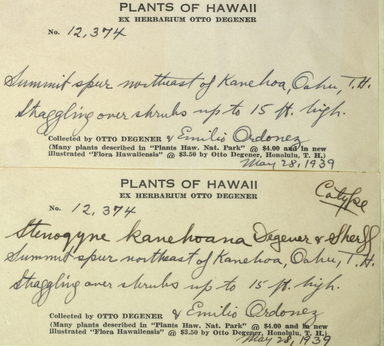 PLANTS OF HAWAII
EX HERBARIUM OTTO DEGENER
No. 12,374
Summit spur northeast of Kanehoa, Oahu, T.H.
Straggling over shrubs up to 15 ft. high.
Collected by OTTO DEGENER & Emilio Ordonez
(Many plants described in "Plants Haw. Nat. Park" @ $4.00 and in new
illustrated "Flora Hawaiiensis" @ $3.50 by Otto Degener, Honolulu, T. H.)
May 28, 1939
PLANTS OF HAWAII
EX HERBARIUM OTTO DEGENER
Cotype
No. 12,374
Stenogyne kanehoana Degener & Sherff
Summit spur northeast of Kanehoa, Oahu, T.H.
Straggling over shrubs up to 15 ft. high.
Collected by OTTO DEGENER & Emilio Ordonez
(Many plants described in "Plants Haw. Nat. Park" @ $4.00 and in new
illustrated "Flora Hawaiiensis" @ $3.50 by Otto Degener, Honolulu, T. H.)
May 28, 1939